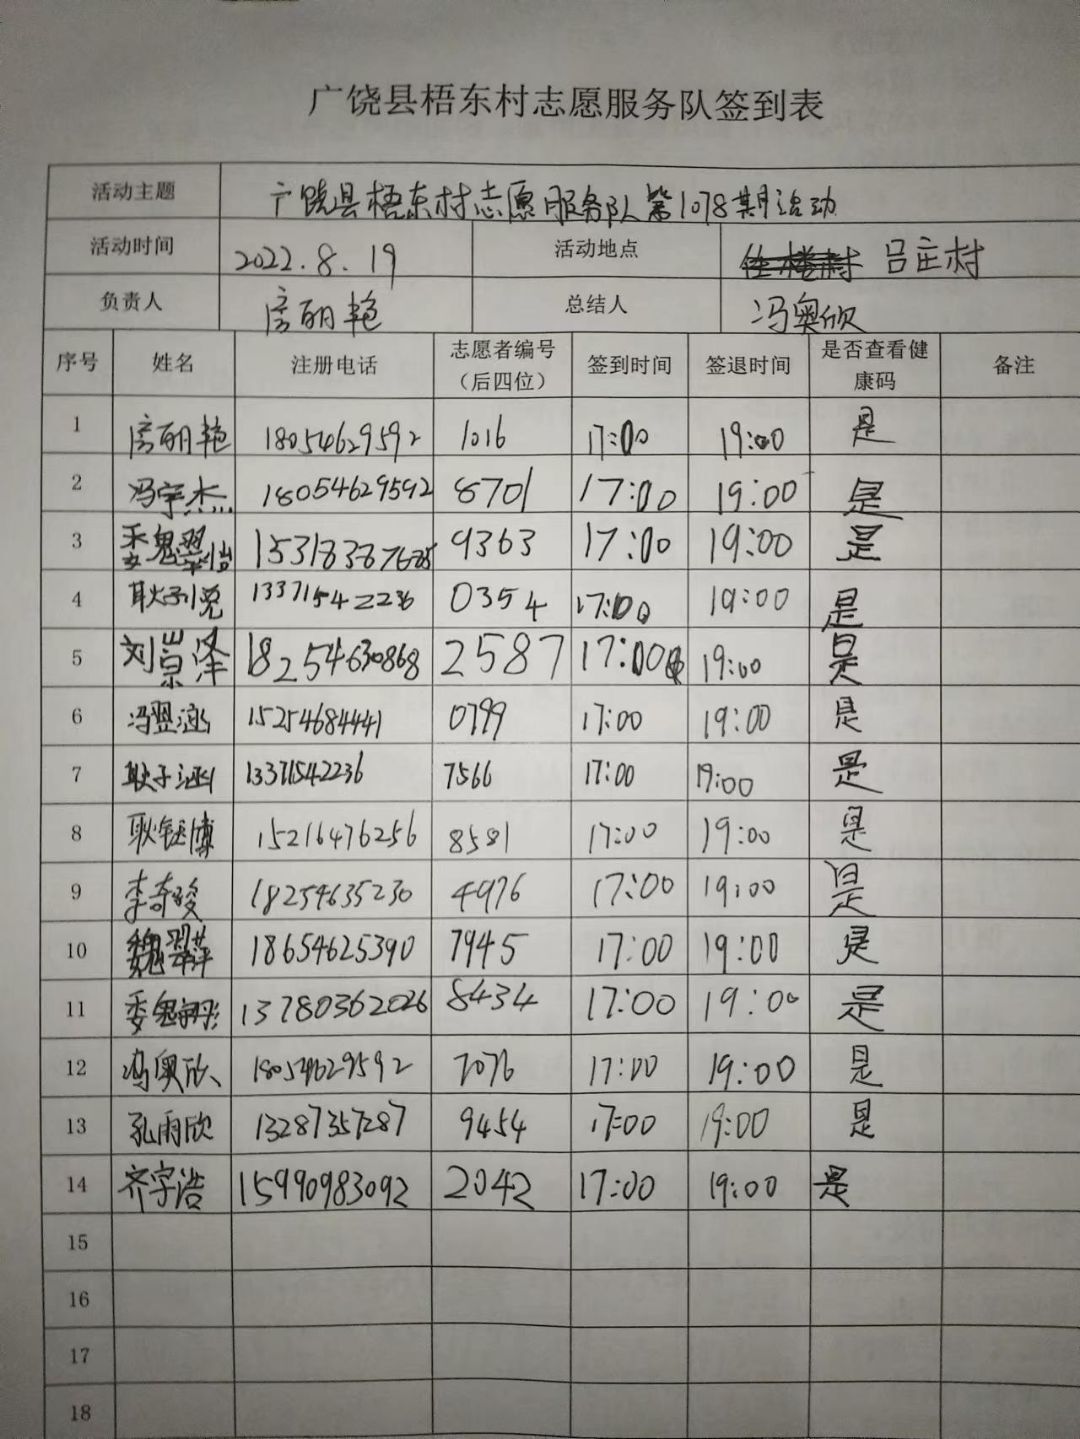 广饶县梧东村志愿服务队签到表
活动主题 广饶县梧东村志愿服务队第1078期活动
活动时间 2022.8.19 活动地点 吕庄村
负责人 房丽艳 总结人 冯奥欣
序号 姓名 注册电话 志愿者编号（后四位） 签到时间 签退时间 是否查看健康码 备注
1 房丽艳 18054629592 1016 17:00 19:00 是
2 冯宇杰 18054629592 8701 17:00 19:00 是
3 9363 17:00 19:00 是
4 耿子悦 13371542236 0354 17:00 19:00 是
5 刘崇泽 18254630868 2587 17:00 19:00 是
6 冯翌涵 15254684441 0799 17:00 19:00 是
7 耿子涵 13371542236 7566 17:00 19:00 是
8 耿钰博 15216476256 8581 17:00 19:00 是
9 李奇骏 18254635230 4976 17:00 19:00 是
10 魏翠萍 18654625390 7945 17:00 19:00 是
11 13780362026 8434 17:00 19:00 是
12 冯奥欣 18054629592 7076 17:00 19:00 是
13 孔雨欣 13287357287 9454 17:00 19:00 是
14 齐宇浩 15990983092 2042 17:00 19:00 是
15
16
17
18